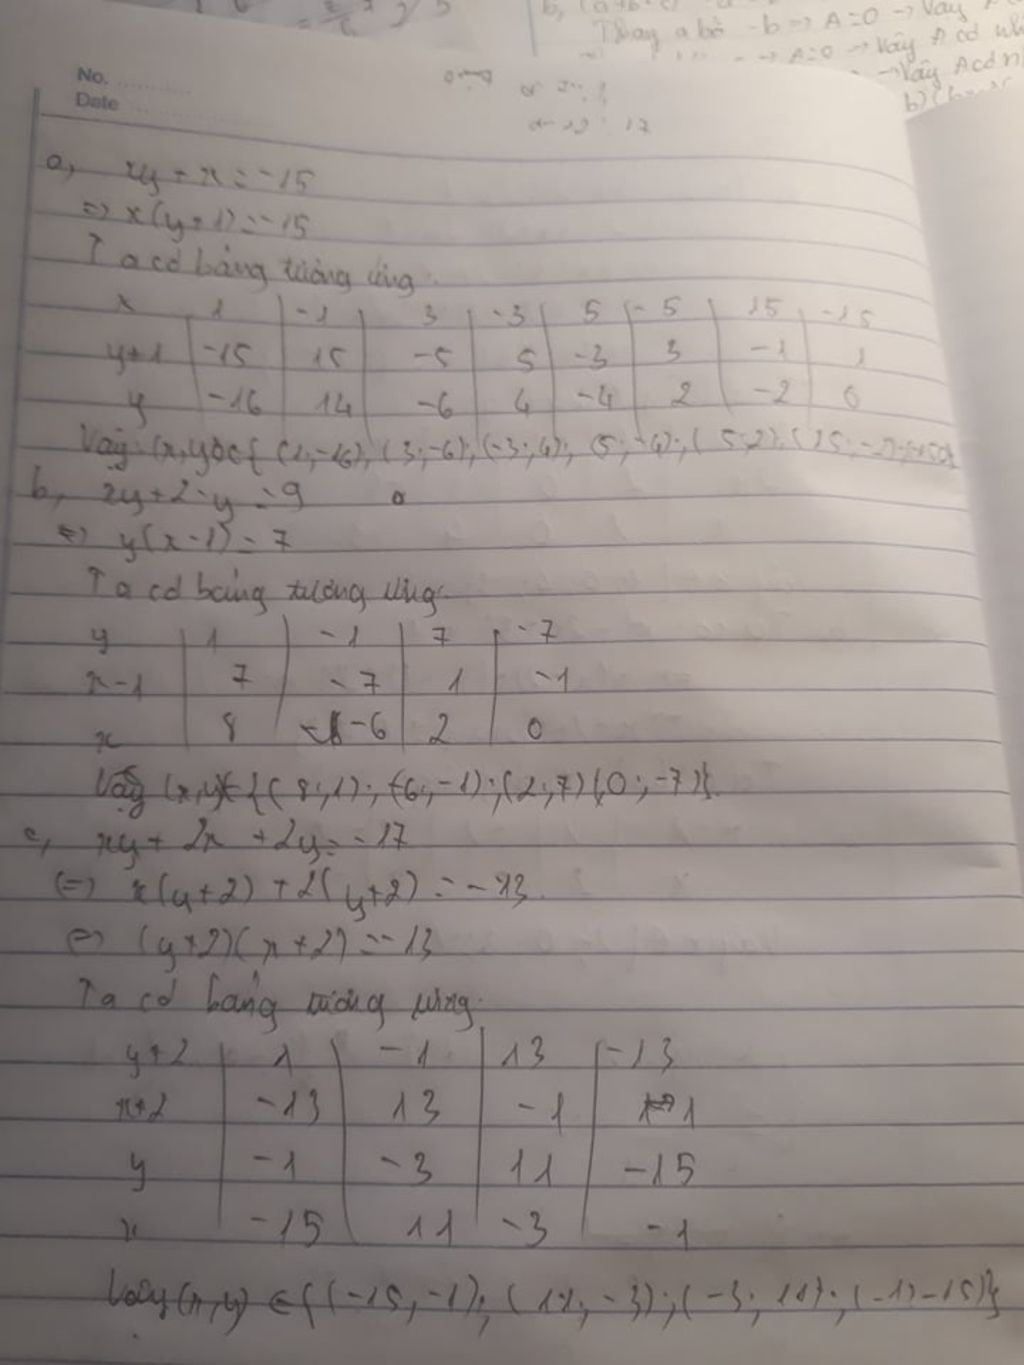 b, (a+b-c)
Thay a bở -b => A=0 -> Vậy
-> A=0 -> Vậy A cd
-> Vậy Acd n
No.
Date
17
a, xy + x = -15
=> x(y+1) = -15
Ta cd bảng tương ứng:
x 1 -1 3 -3 5 -5 15 -15
y+1 -15 15 -5 5 -3 3 -1 1
y -16 14 -6 4 -4 2 -2 0
Vậy: (x,y) ∈ { (1,-16); (3;-6); (-3;4); (5;-4); (5;2); (15;-2)
b, xy+2-y = 9
<=> y(x-1) = 7
Ta cd bảng tương ứng:
y 1 -1 7 -7
x-1 7 -7 1 -1
x 8 -6 2 0
Vậy (x,y) ∈ {(8;1); (-6;-1); (2;7) (0;-7)}.
c, xy + 2x + 2y = -17
(=) x(y+2) + 2(y+2) = -13
<=> (y+2)(x+2) = -13
Ta cd bảng tương ứng:
y+2 1 -1 13 -13
x+2 -13 13 -1 1
y -1 -3 11 -15
x -15 11 -3 -1
Vậy (x,y) ∈ {(-15,-1); (11;-3); (-3;11); (-1;-15)}